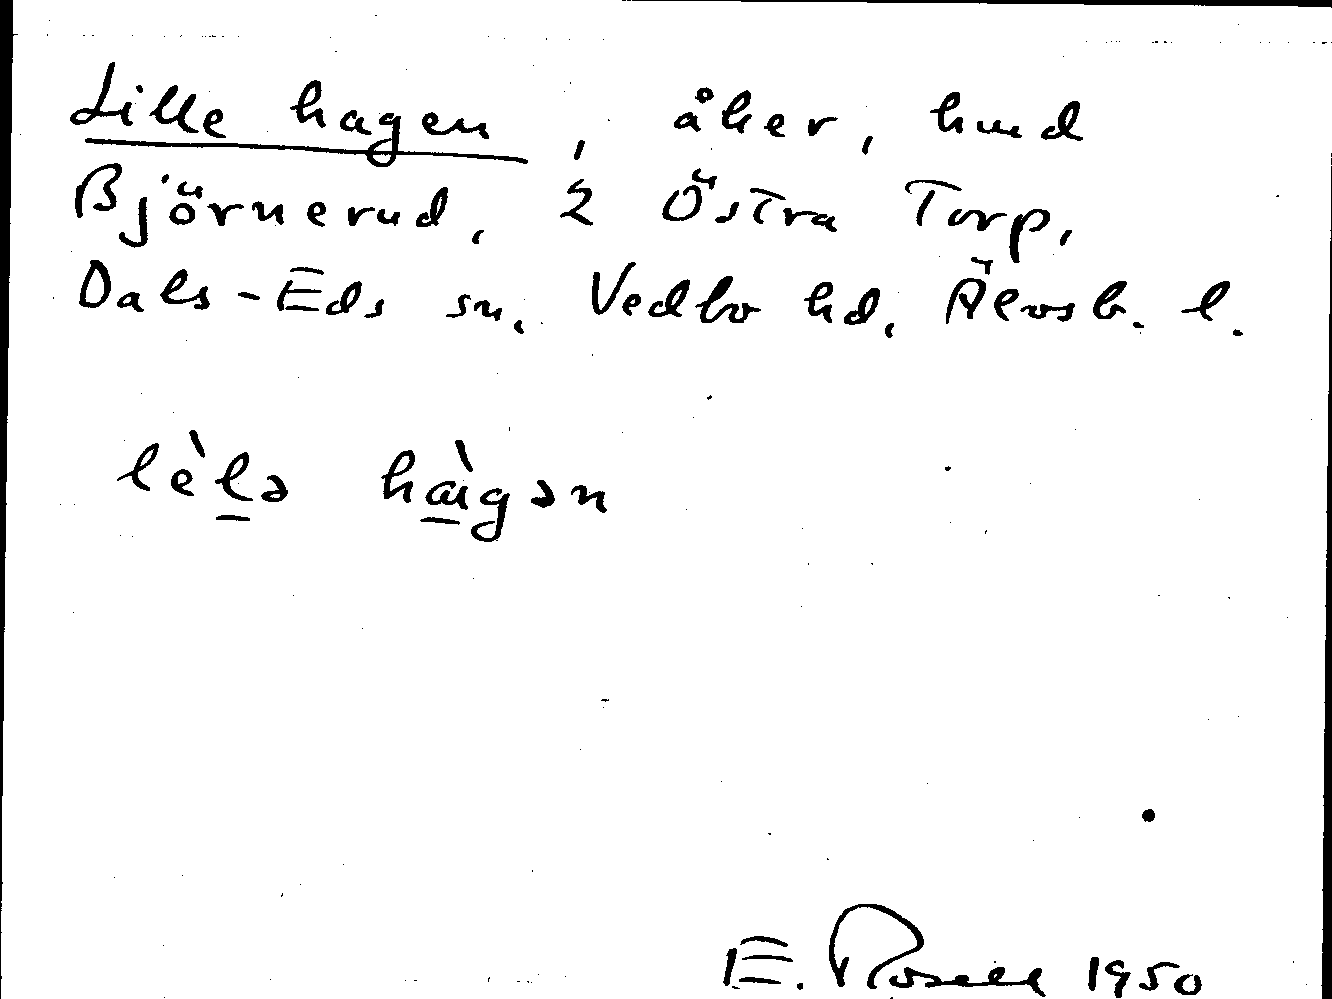 Lille hagen, åker, hmd
Björnerud, 2 Östra Torp,
Dals-Eds sn, Vedbo hd, Älvsb. l.
lèlə hàgən
E. Rosell 1950